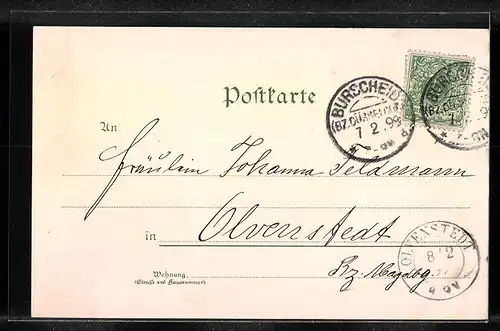 Postkarte
BURSCHEID
(BZ. DÜSSELDORF)
7 2. 99
An
Fräulein Johanna Feldmann
in
Olvenstedt
OLVENSTEDT
8/2
Bz. Magdbg.
Wohnung
(Straße und Hausnummer)